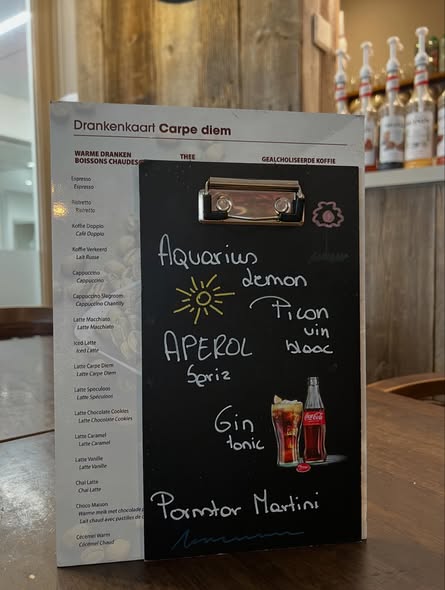 Drankenkaart Carpe diem
WARME DRANKEN
BOISSONS CHAUDES
THEE
GEALCHOLISEERDE KOFFIE
Espresso
Espresso
Ristretto
Ristretto
Koffie Doppio
Café Doppio
Koffie Verkeerd
Lait Russe
Cappuccino
Cappuccino
Cappuccino Slagroom
Cappuccino Chantilly
Latte Macchiato
Latte Macchiato
Iced Latte
Iced Latte
Latte Carpe Diem
Latte Carpe Diem
Latte Speculoos
Latte Spéculoos
Latte Chocolate Cookies
Latte Chocolate Cookies
Latte Caramel
Latte Caramel
Latte Vanille
Latte Vanille
Chai Latte
Chai Latte
Choco Maison
Warme melk met chocolade
Lait chaud avec pastilles de c
Cécémel Warm
Cécémel Chaud
Aquarius
demon
Picon
vin
blaac
APEROL
Spriz
Gin
tonic
Coca-Cola
Pormtor Martini